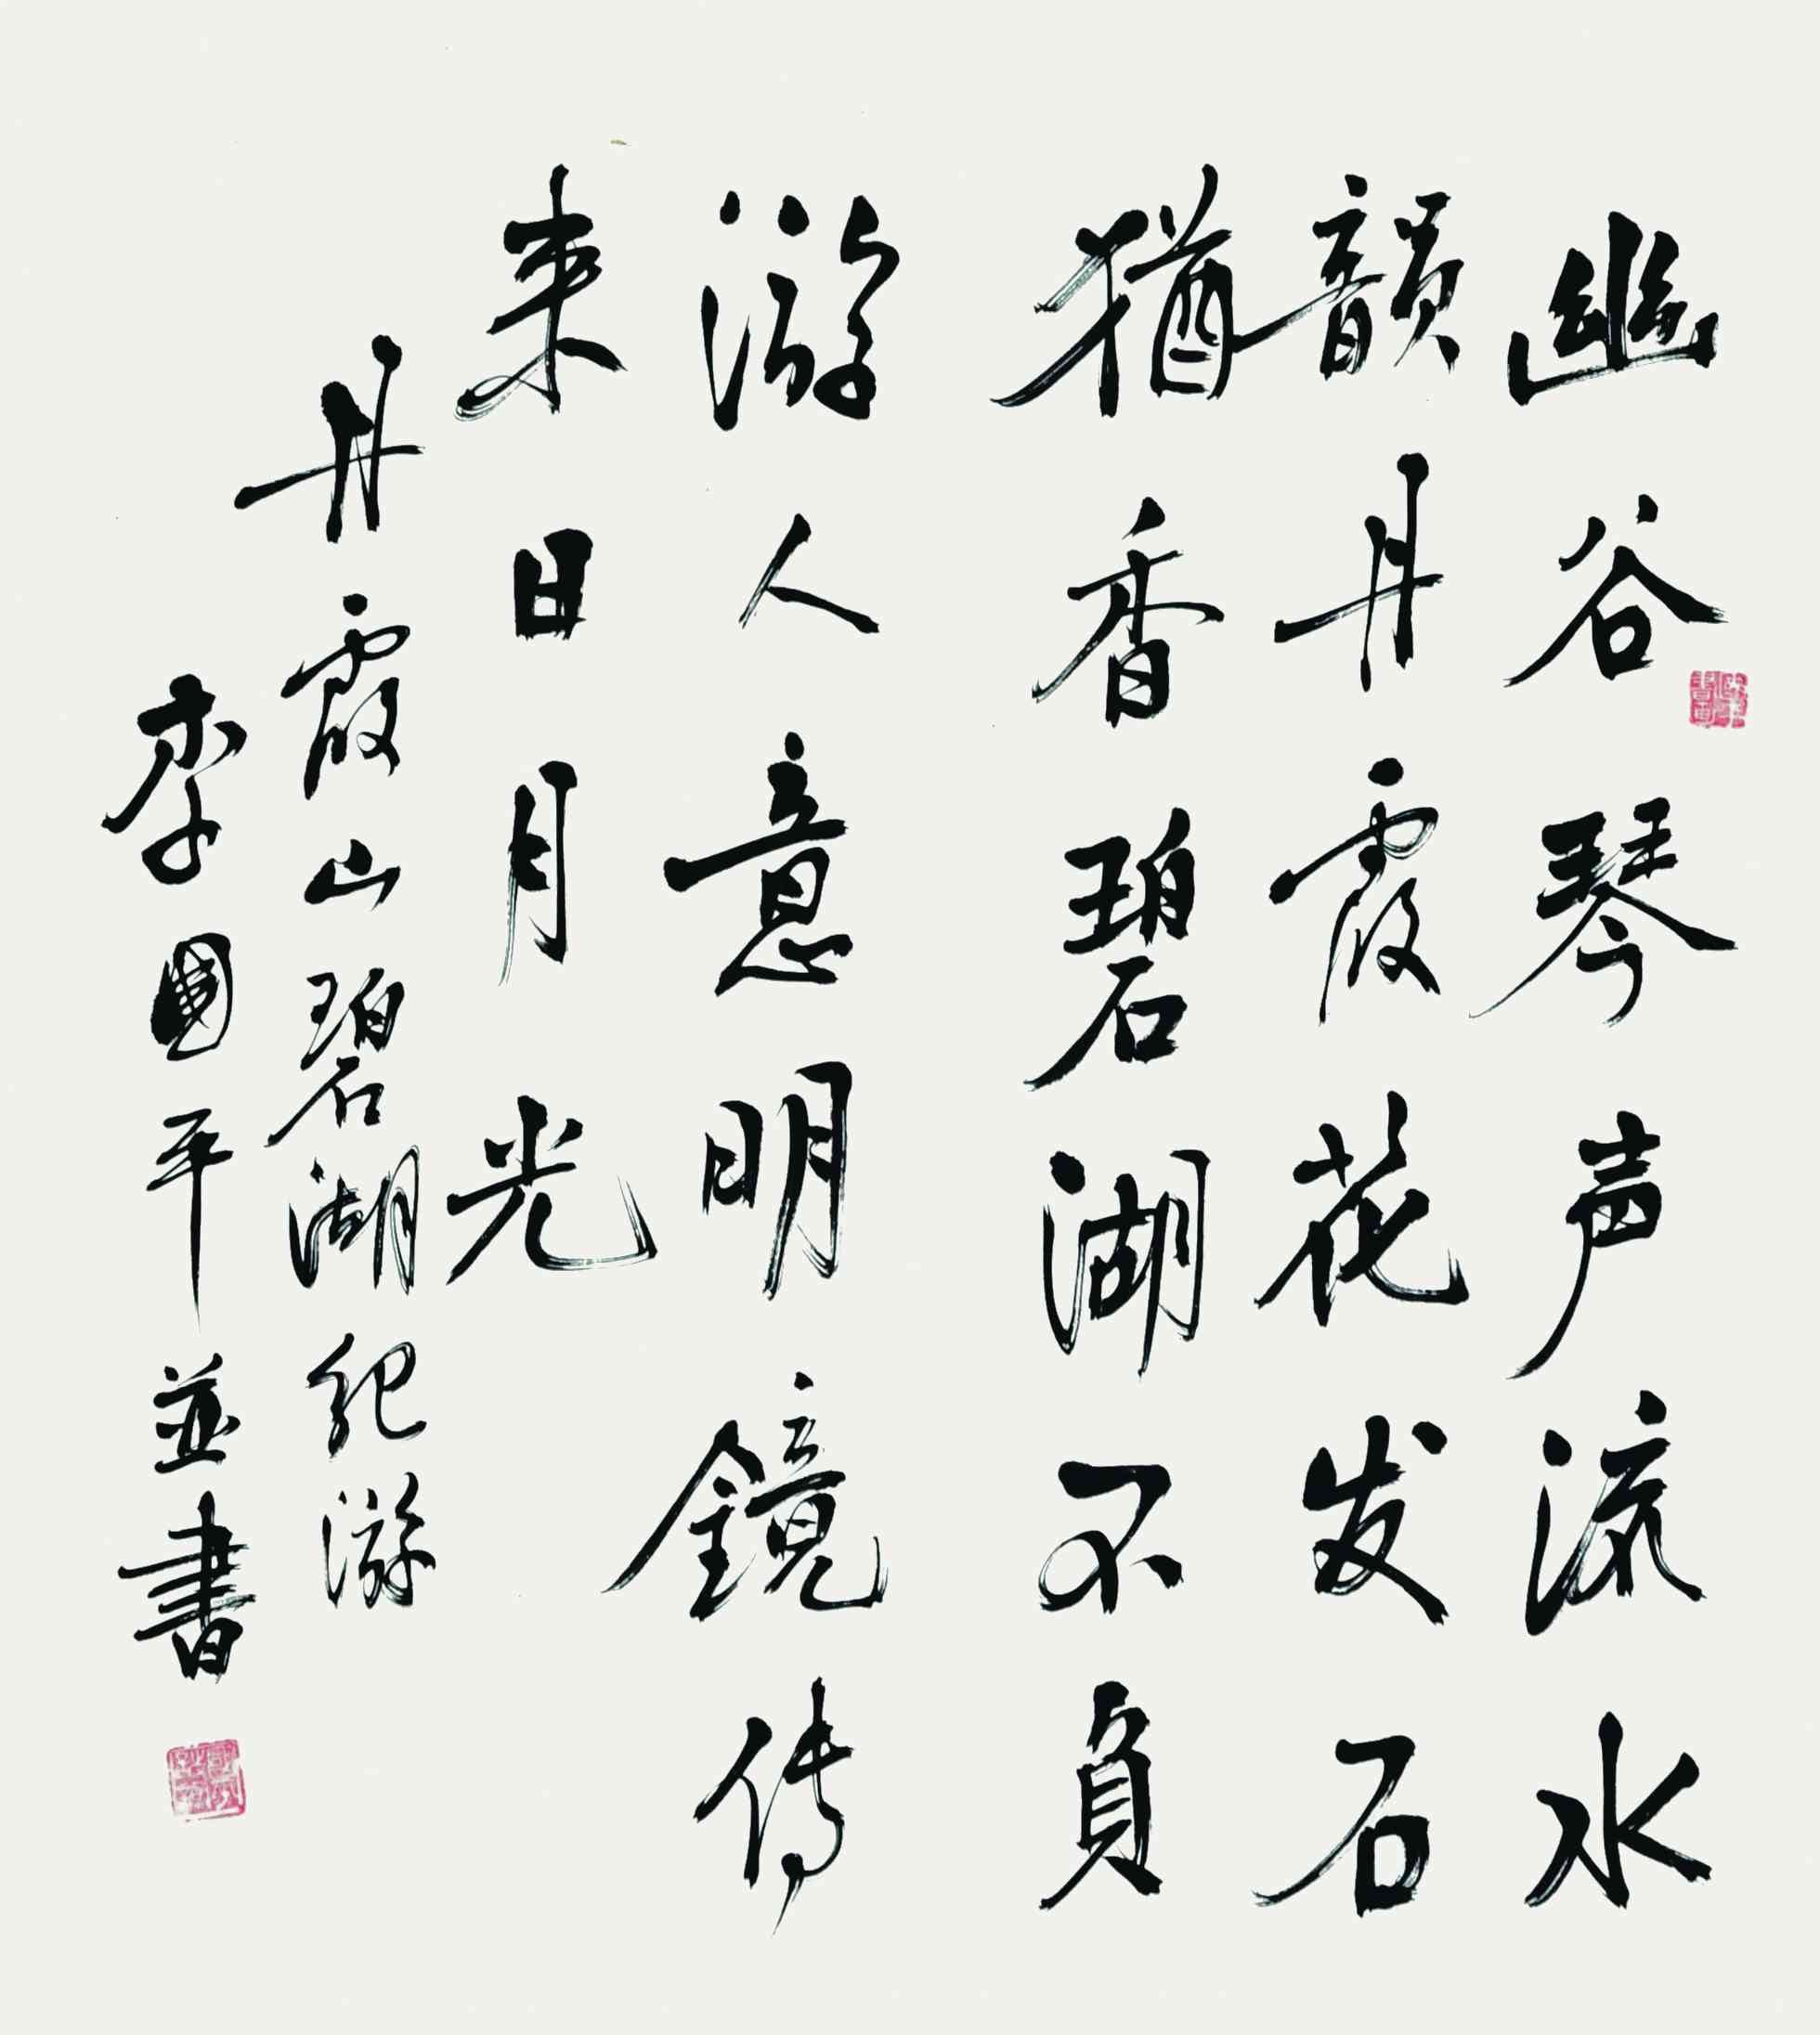 幽谷琴声流水
韻丹霞花发石
猶香碧湖不負
游人意明鏡传
来日月光
丹霞山碧湖纪游
李國平並書